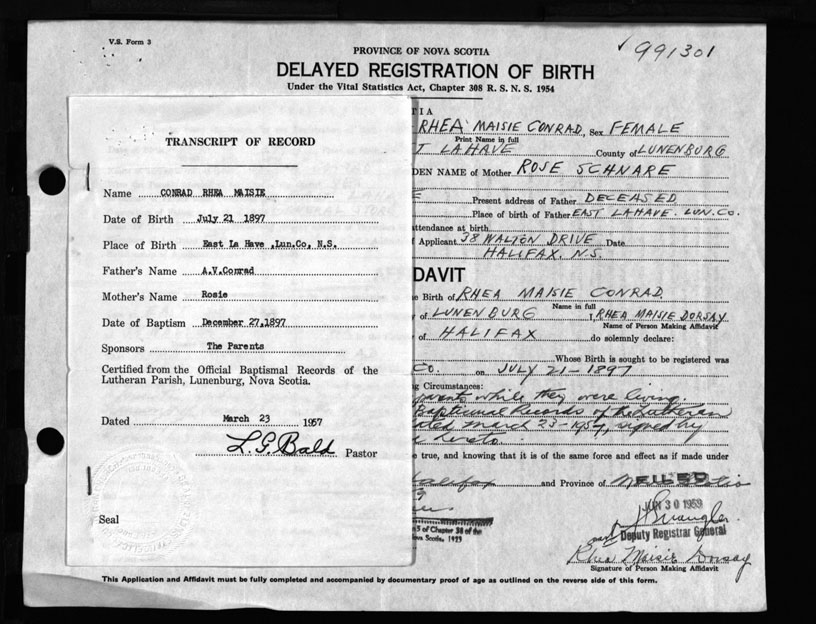 V.S. Form 3
991301
PROVINCE OF NOVA SCOTIA
DELAYED REGISTRATION OF BIRTH
Under the Vital Statistics Act, Chapter 308 R. S. N. S. 1954
TRANSCRIPT OF RECORD
Name CONRAD RHEA MAISIE
Date of Birth July 21 1897
Place of Birth East La Have ,Lun.Co, N.S.
Father's Name A.V.Conrad
Mother's Name Rosie
Date of Baptism December 27,1897
Sponsors The Parents
Certified from the Official Baptismal Records of the
Lutheran Parish, Lunenburg, Nova Scotia.
Dated March 23 1957
L.G. Bald Pastor
Seal
TIA
RHEA MAISIE CONRAD, Sex FEMALE
Print Name in full
T LAHAVE County of LUNENBURG
DEN NAME of Mother ROSE SCHNARE
E Present address of Father DECEASED
Place of birth of Father EAST LAHAVE. LUN. CO.
ttendance at birth
Applicant 38 WALTON DRIVE Date
HALIFAX, N.S.
DAVIT
e Birth of RHEA MAISIE CONRAD
Name in full
of LUNENBURG I, RHEA MAISIE DORSAY
Name of Person Making Affidavit
of HALIFAX do solemnly declare:
Whose Birth is sought to be registered was
CO. on JULY 21-1897
g Circumstances:
parents while they were living.
Baptismal Records of the Lutheran
ated March 23-1957, signed by
hereto.
e true, and knowing that it is of the same force and effect as if made under
Halifax and Province of
FILED
JUN 30 1959
n 5 of Chapter 38 of the
Nova Scotia, 1923
Deputy Registrar General
Rhea Maisie Dorsay
Signature of Person Making Affidavit
This Application and Affidavit must be fully completed and accompanied by documentary proof of age as outlined on the reverse side of this form.